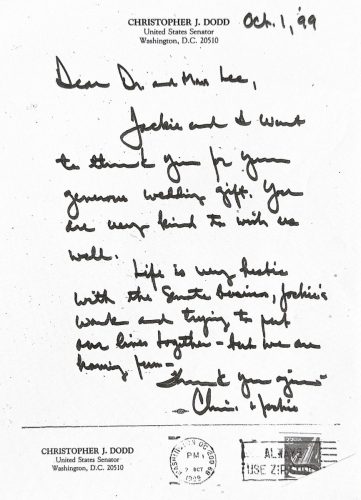 CHRISTOPHER J. DODD
United States Senator
Washington, D.C. 20510
Oct. 1, '99
Dear Dr. and Mrs Lee,
Jackie and I want
to thank you for your
generous wedding gift. You
are very kind to wish us
well.
Life is very hectic
with the Senate business, Jackie's
work and trying to put
our lives together - but we are
having fun -
Thank you again -
Chris & Jackie
CHRISTOPHER J. DODD
United States Senator
Washington, D.C. 20510
WASHINGTON DC
PM
2 OCT
1999
ALWAYS
USE ZIP CODE